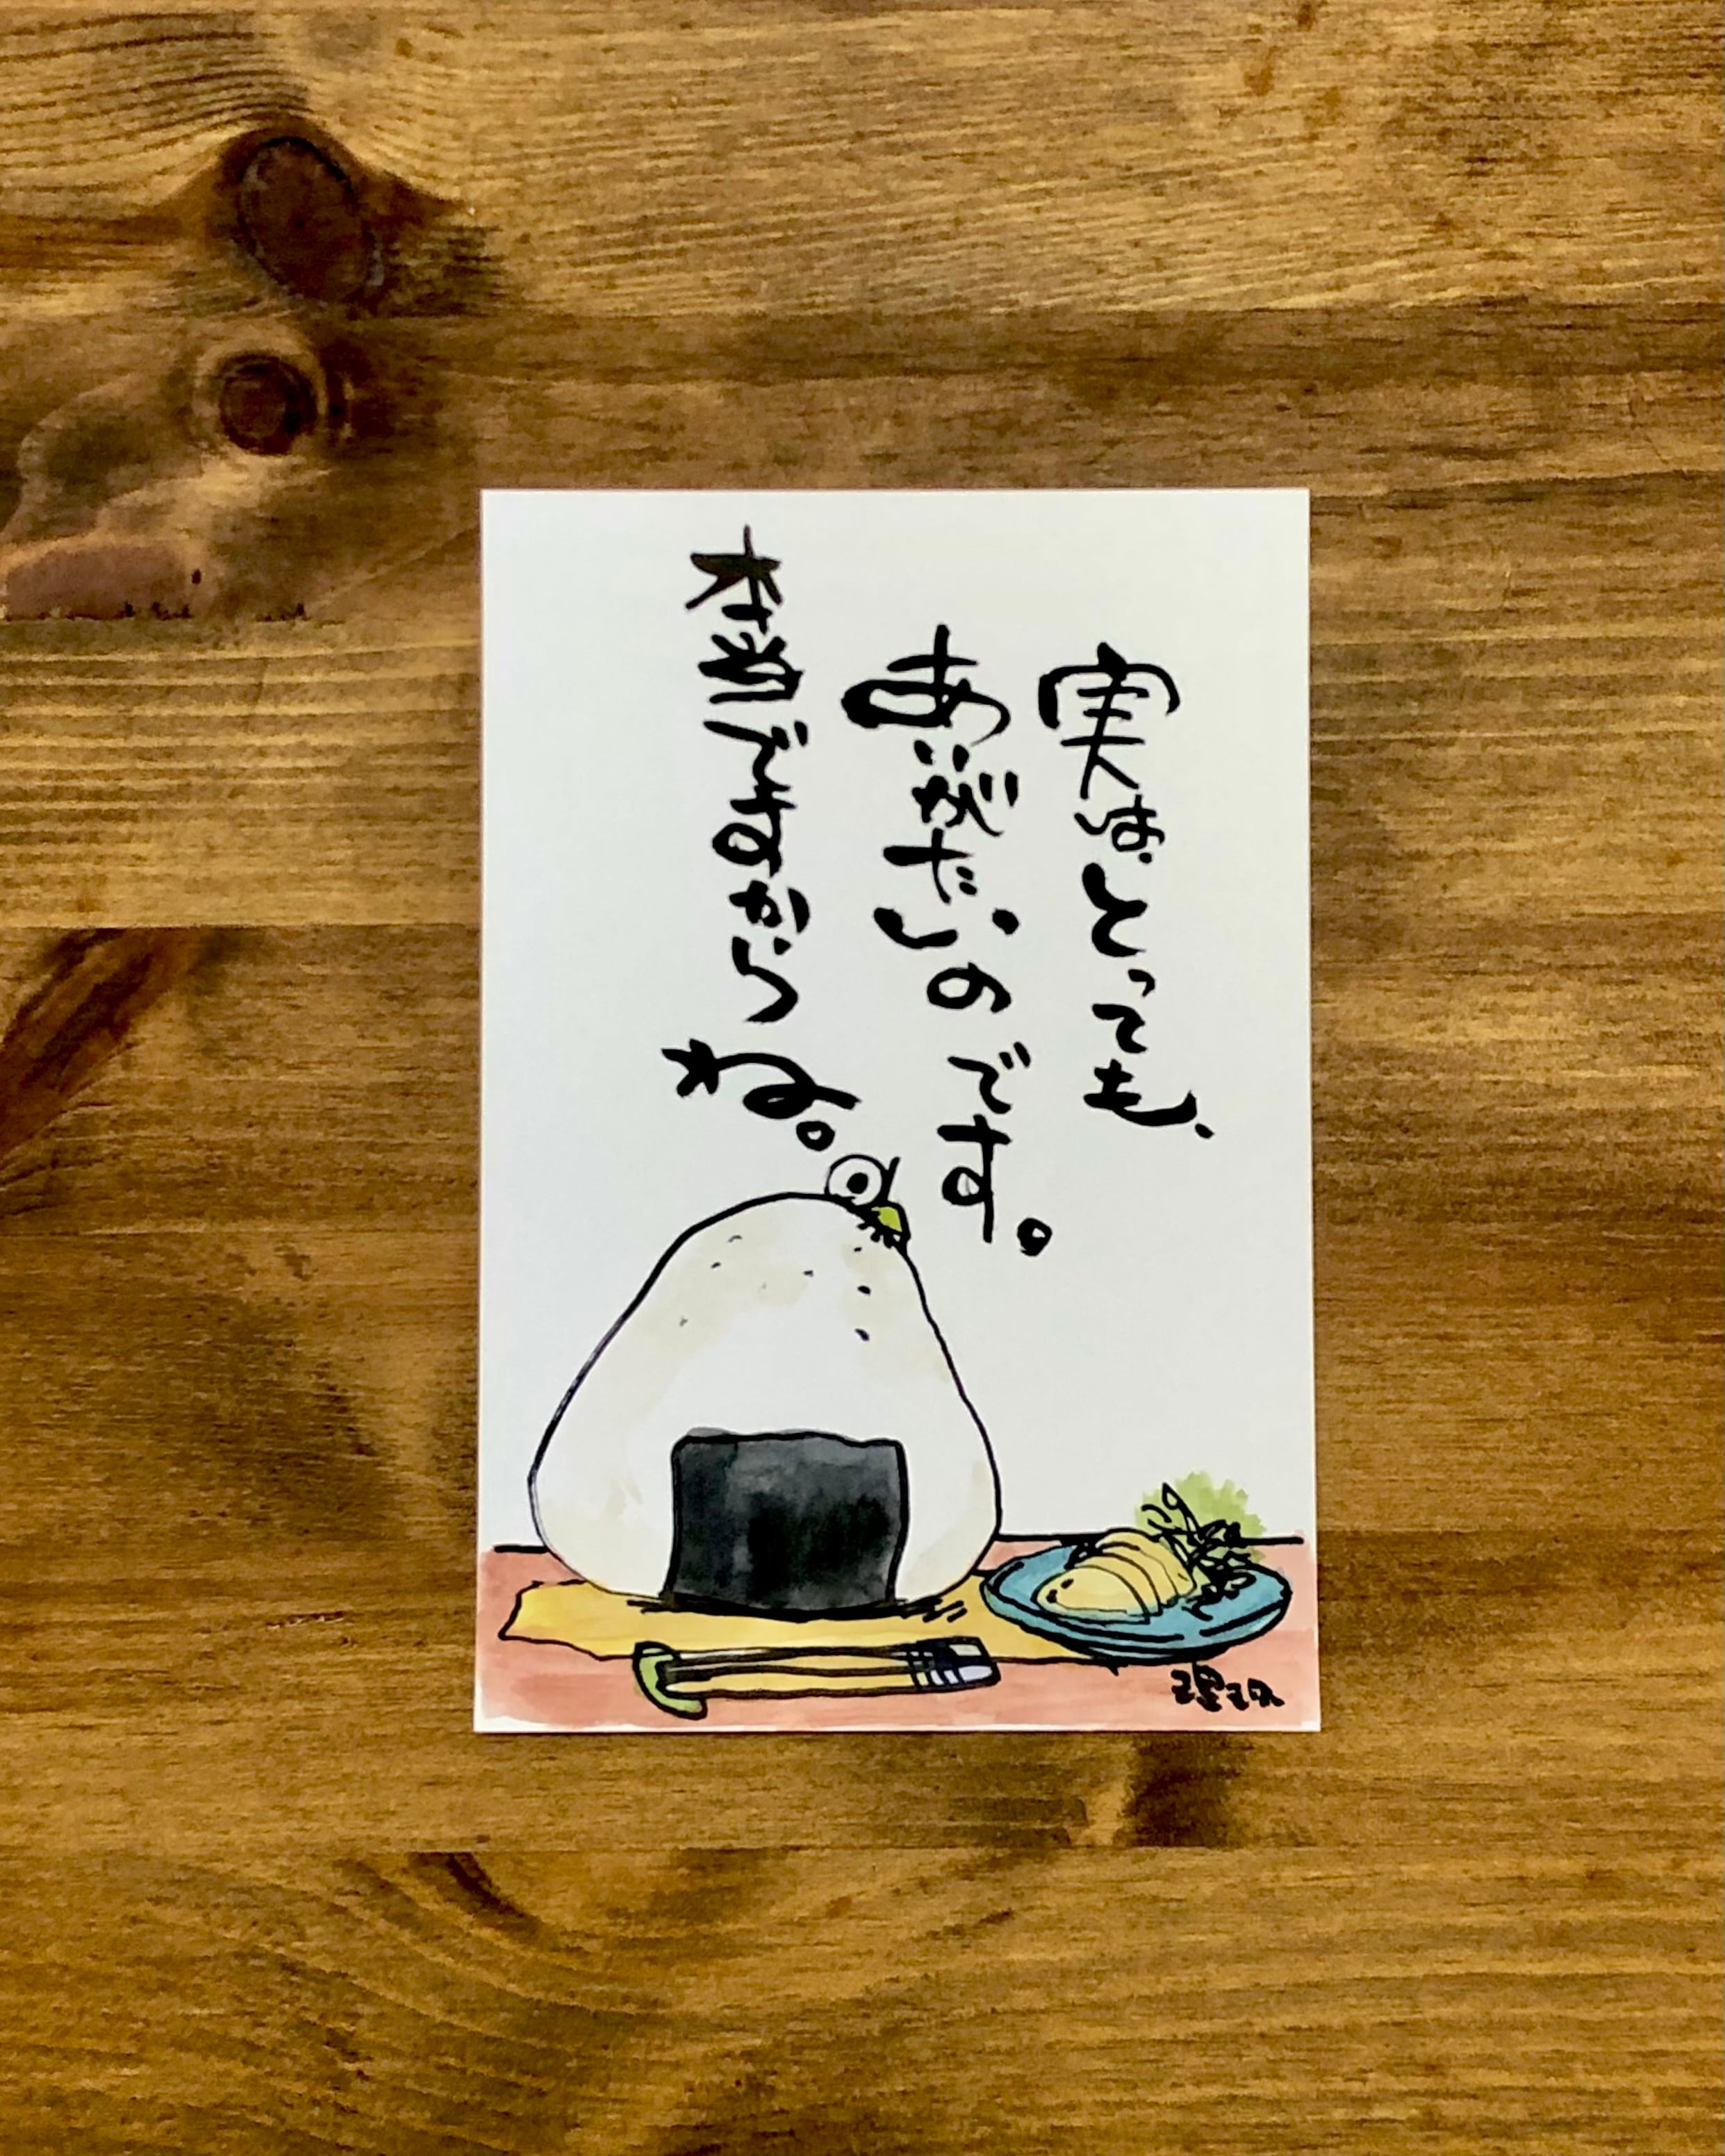 実はとっても、
ありがたいのです。
本当ですからね。